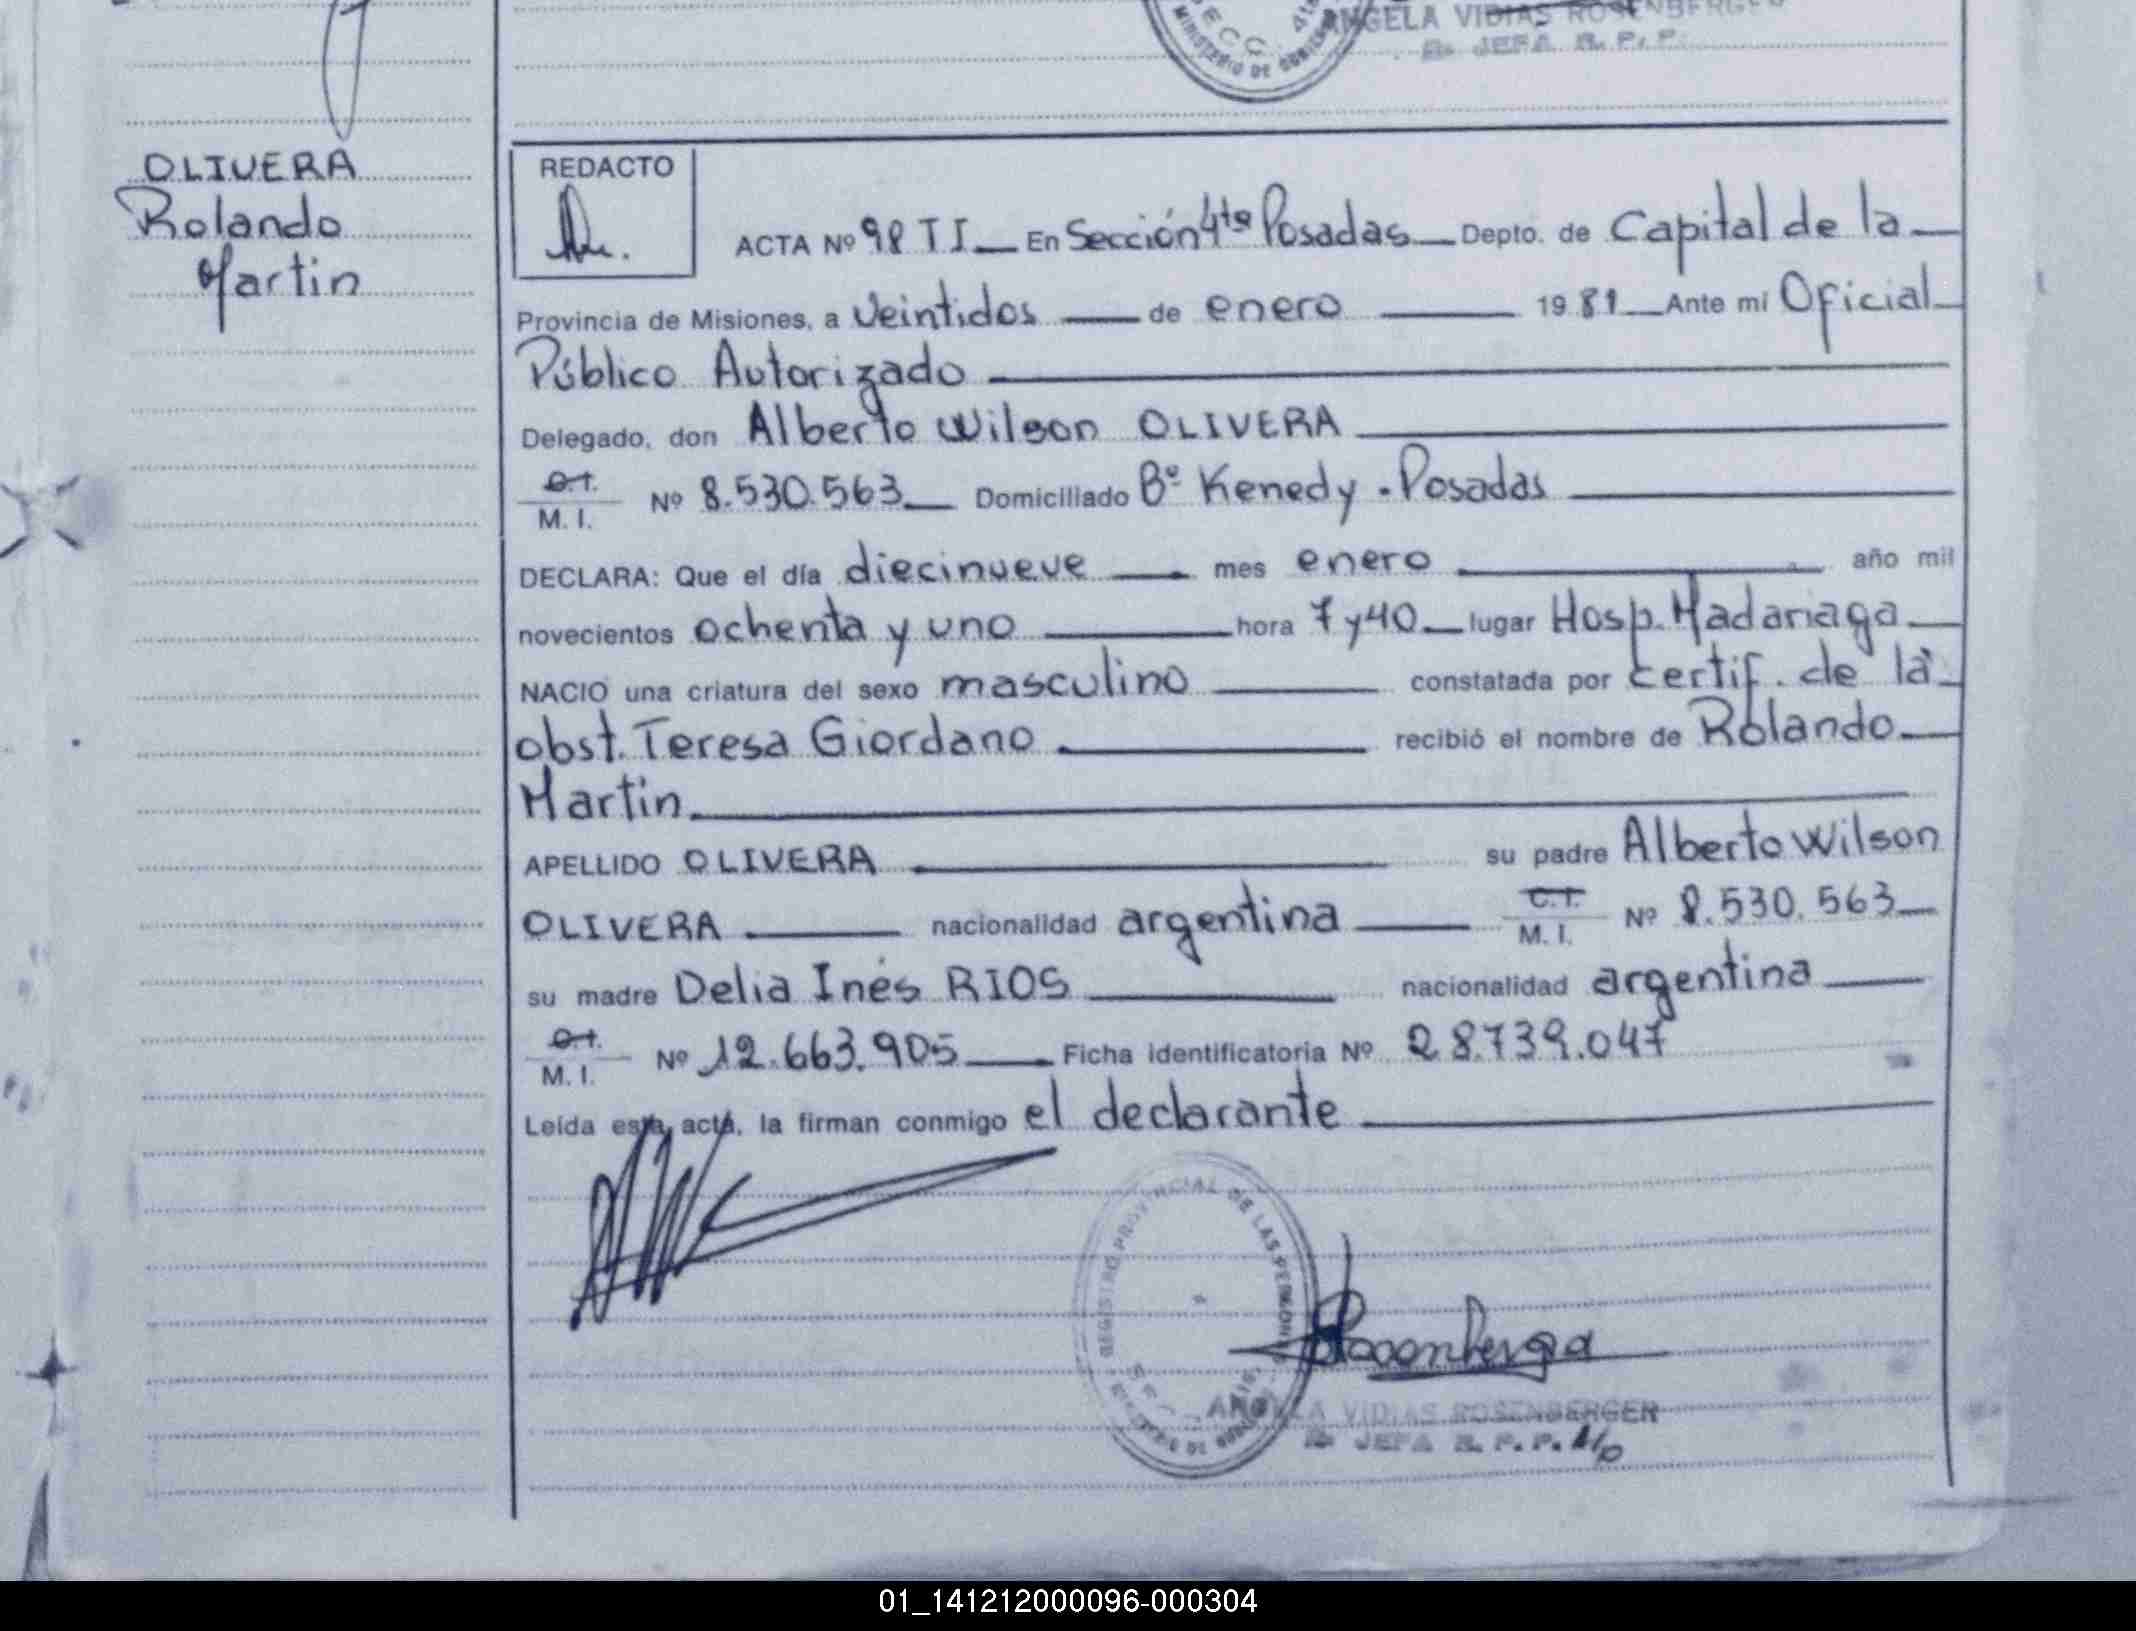 ANGELA VIDIAS ROSENBERGER
JEFA R. P. P.
MINISTERIO DE GOBIERNO
OLIVERA
Rolando
Martin
REDACTO
ACTA Nº 98 T I En Sección 4ta Posadas Depto. de Capital de la
Provincia de Misiones, a Veintidos de enero 1981 Ante mí Oficial
Público Autorizado
Delegado, don Alberto Wilson OLIVERA
C.I.
M. I. Nº 8.530.563 Domiciliado Bº Kenedy . Posadas
DECLARA: Que el día diecinueve mes enero año mil
novecientos ochenta y uno hora 7 y 40 lugar Hosp. Madariaga
NACIO una criatura del sexo masculino constatada por certif. de la
obst. Teresa Giordano recibió el nombre de Rolando
Martin
APELLIDO OLIVERA su padre Alberto Wilson
OLIVERA nacionalidad argentina C.I. M. I. Nº 8.530.563
su madre Delia Inés RIOS nacionalidad argentina
C.I.
M. I. Nº 12.663.905 Ficha identificatoria Nº 28.739.047
Leída esta acta, la firman conmigo el declarante
REGISTRO PROVINCIAL DE LAS PERSONAS
Rosenberger
ANGELA VIDIAS ROSENBERGER
JEFA R. P. P. A/c
01_141212000096-000304